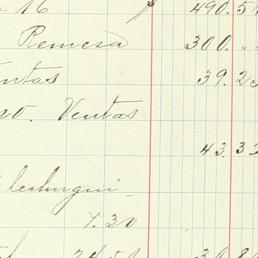 16 490.5
Remesa 300.
Ventas 39.25
no. Ventas
43.33
lechugui-
7.20
24.51 30.8